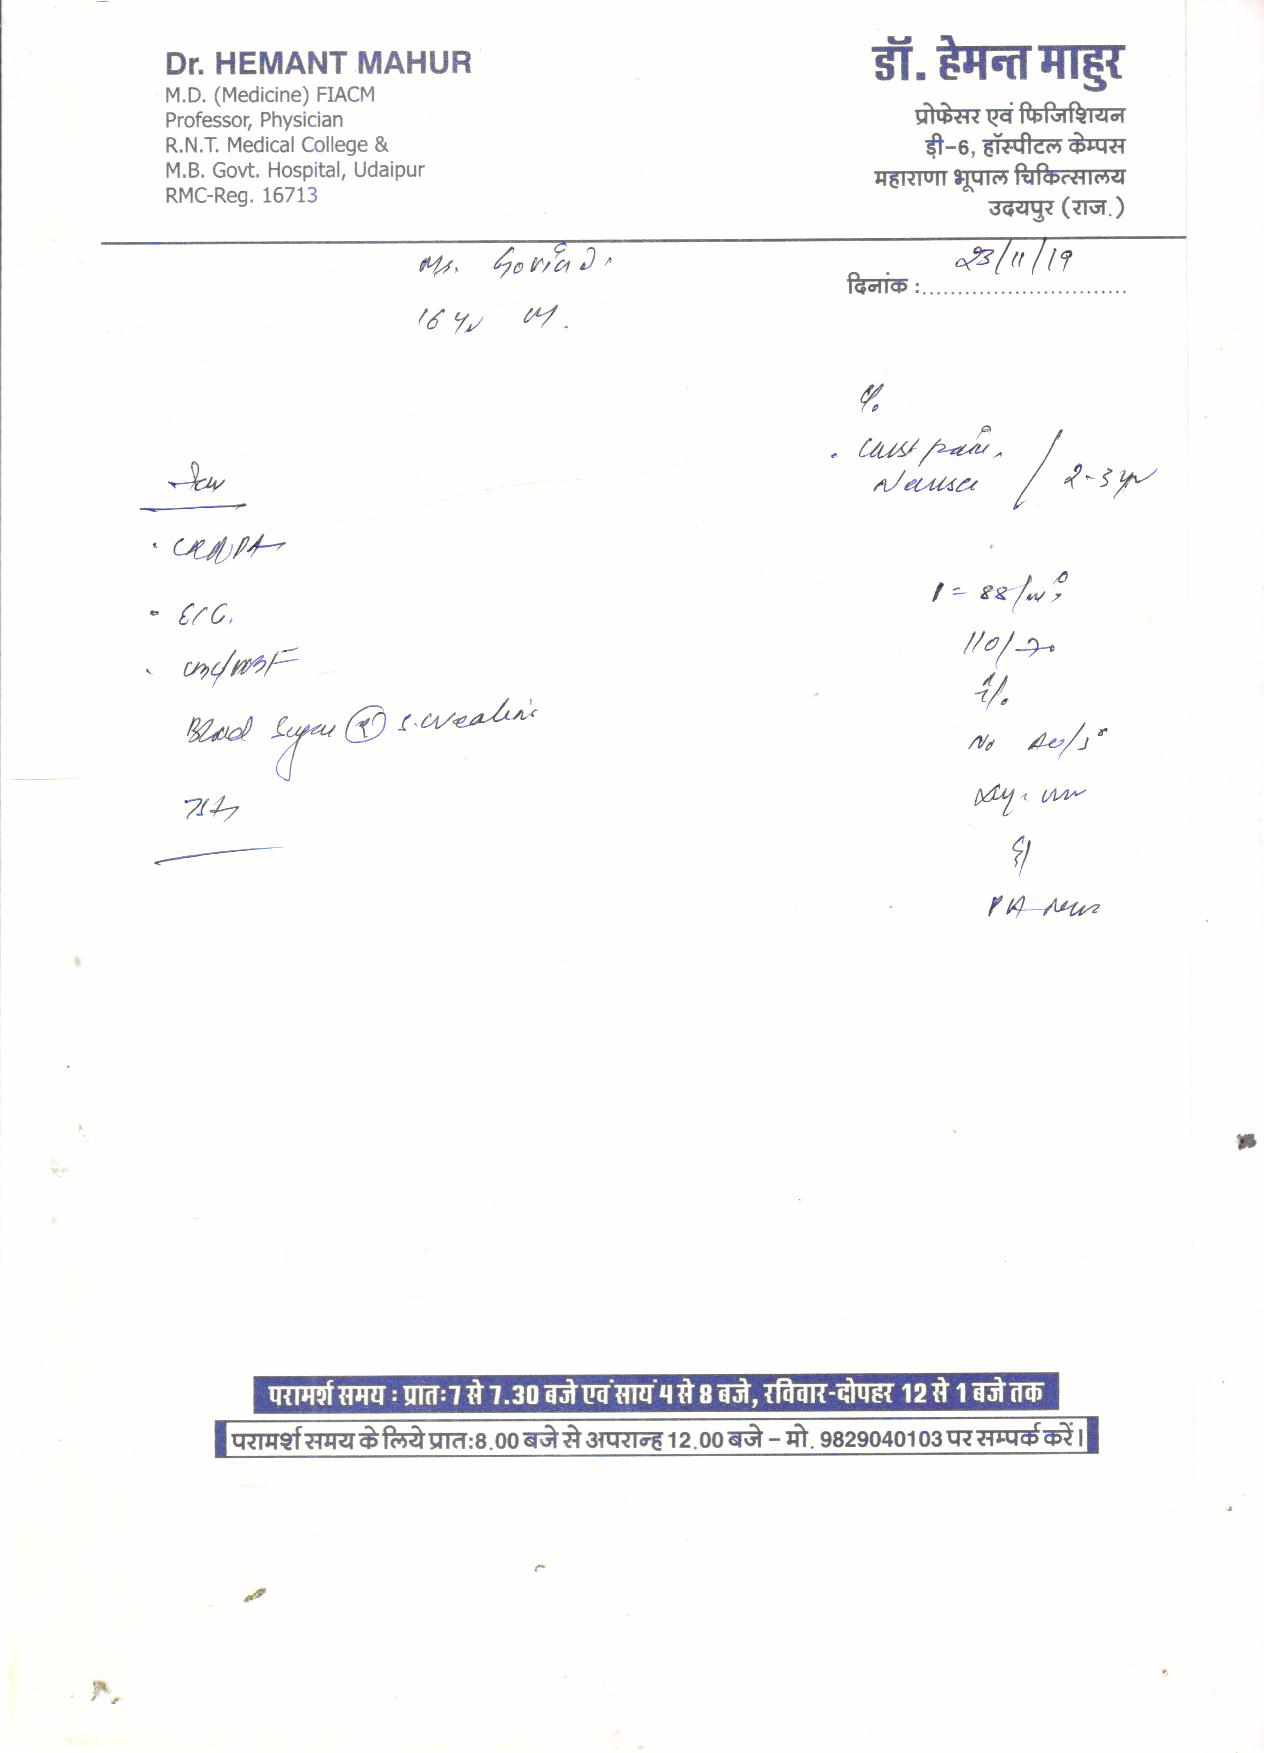 Dr. HEMANT MAHUR
M.D. (Medicine) FIACM
Professor, Physician
R.N.T. Medical College &
M.B. Govt. Hospital, Udaipur
RMC-Reg. 16713
डॉ. हेमन्त माहुर
प्रोफेसर एवं फिजिशियन
ड़ी-6, हॉस्पीटल केम्पस
महाराणा भूपाल चिकित्सालय
उदयपुर (राज.)
Govind
दिनांक : 23/11/19
16 yr M.
Chest pain
Nausea / 2-3 yr
• ECG.
88/min
110/70
Blood Sugar S. Creatinine
No
PA
परामर्श समय : प्रातः7 से 7.30 बजे एवं सायं 4 से 8 बजे, रविवार-दोपहर 12 से 1 बजे तक
परामर्श समय के लिये प्रात:8.00 बजे से अपरान्ह 12.00 बजे - मो. 9829040103 पर सम्पर्क करें।